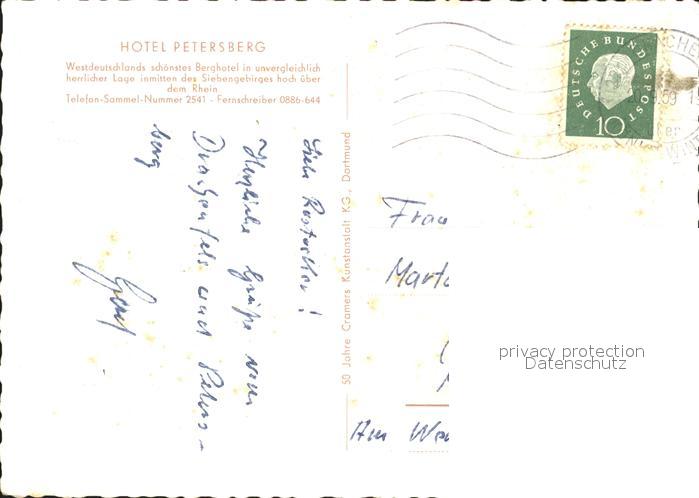 HOTEL PETERSBERG
Westdeutschlands schönstes Berghotel in unvergleichlich
herrlicher Lage inmitten des Siebengebirges hoch über
dem Rhein
Telefon-Sammel-Nummer 2541 - Fernschreiber 0886-644
Herzliche Grüße vom
Drachenfels und Peters-
berg
Gerd
50 Jahre Cramers Kunstanstalt KG., Dortmund
DEUTSCHE BUNDESPOST
10
59
Frau
Marta
Am
privacy protection
Datenschutz